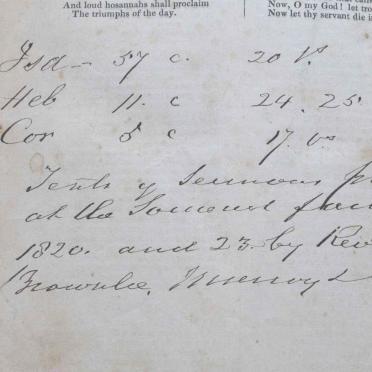 And loud hosannahs shall proclaim
The triumphs of the day.
Now, O my God! let tro
Now let thy servant die i
Isa - 57 c. 20 Vs.
Heb 11. c 24. 25
Cor 5 c 17. vs
Texts of Sermons
at the Somerset
1820. and 23. by Rev
Brownlee,